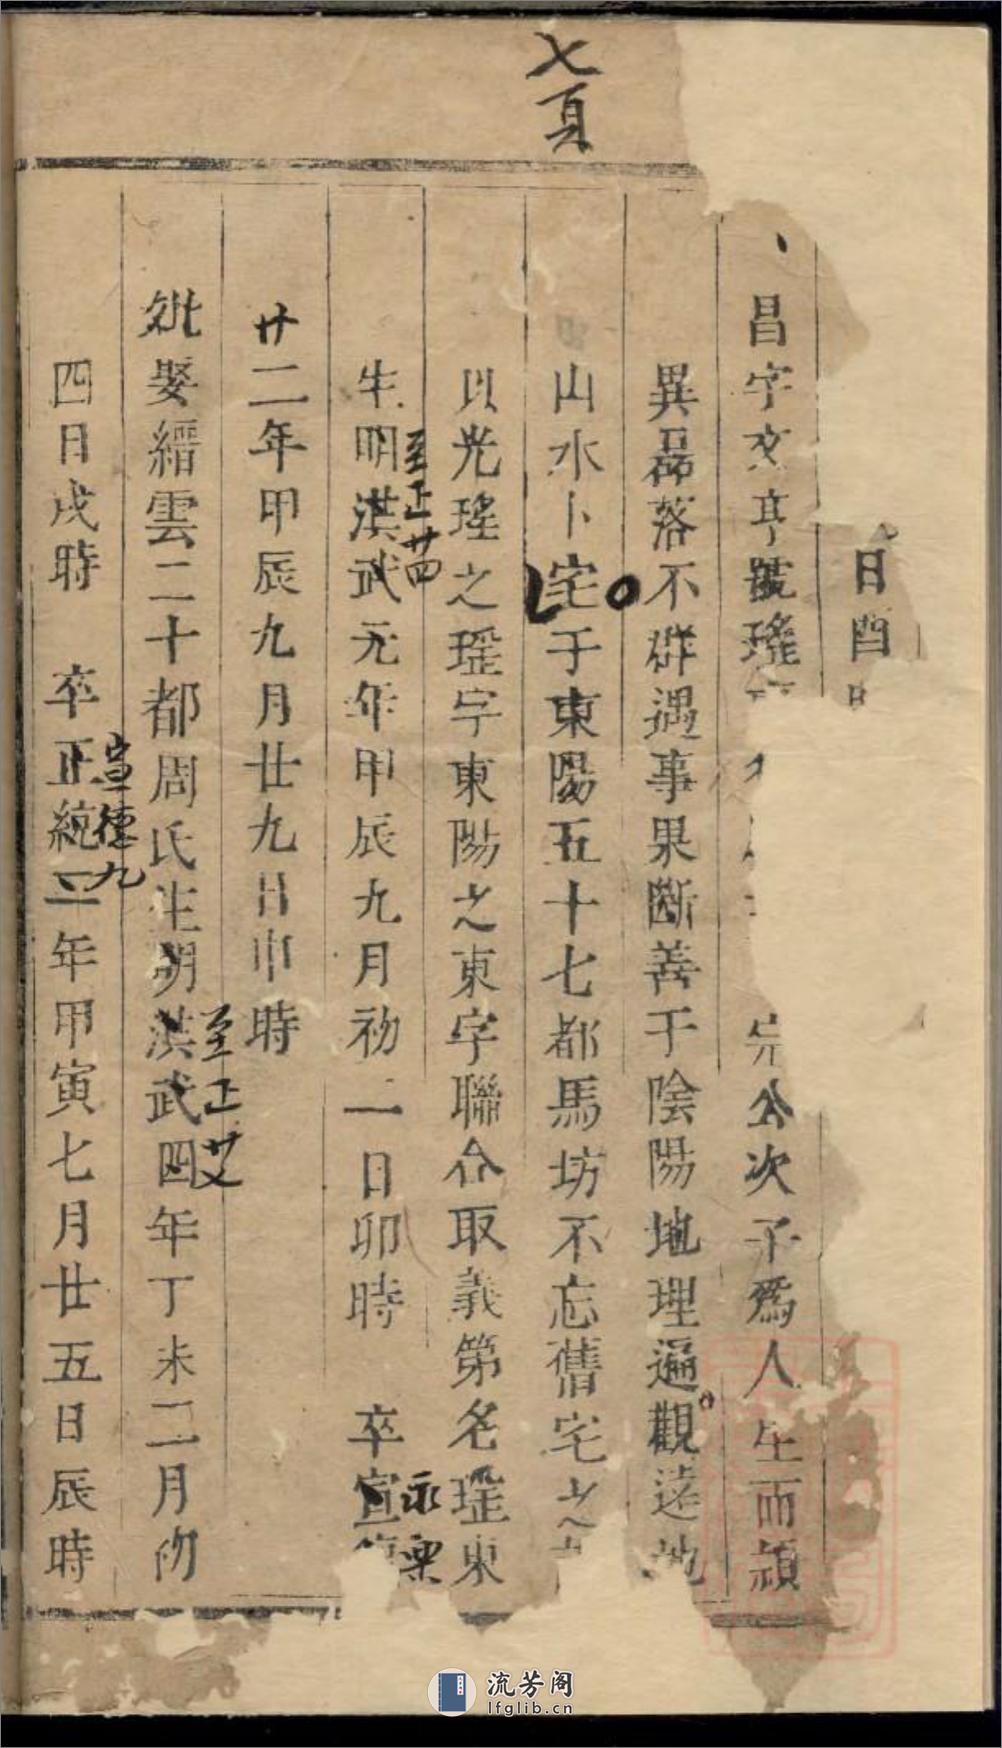 七頁
日酉
昌字文亨號瑤 公次子爲人生而穎
異磊落不群遇事果斷善于陰陽地理遍觀遠地
山水卜宅于東陽五十七都馬坊不忘舊宅之
以光瑤之瑤字東陽之東字聯合取義第名瑤東
生明洪武元年甲辰九月初一日卯時 卒宣
至正廿四
永樂
廿二年甲辰九月廿九日申時
妣娶縉雲二十都周氏生明洪武四年丁未二月初
至正廿
四日戌時 卒正統二年甲寅七月廿五日辰時
宣德九
流芳阁
lfglib.cn